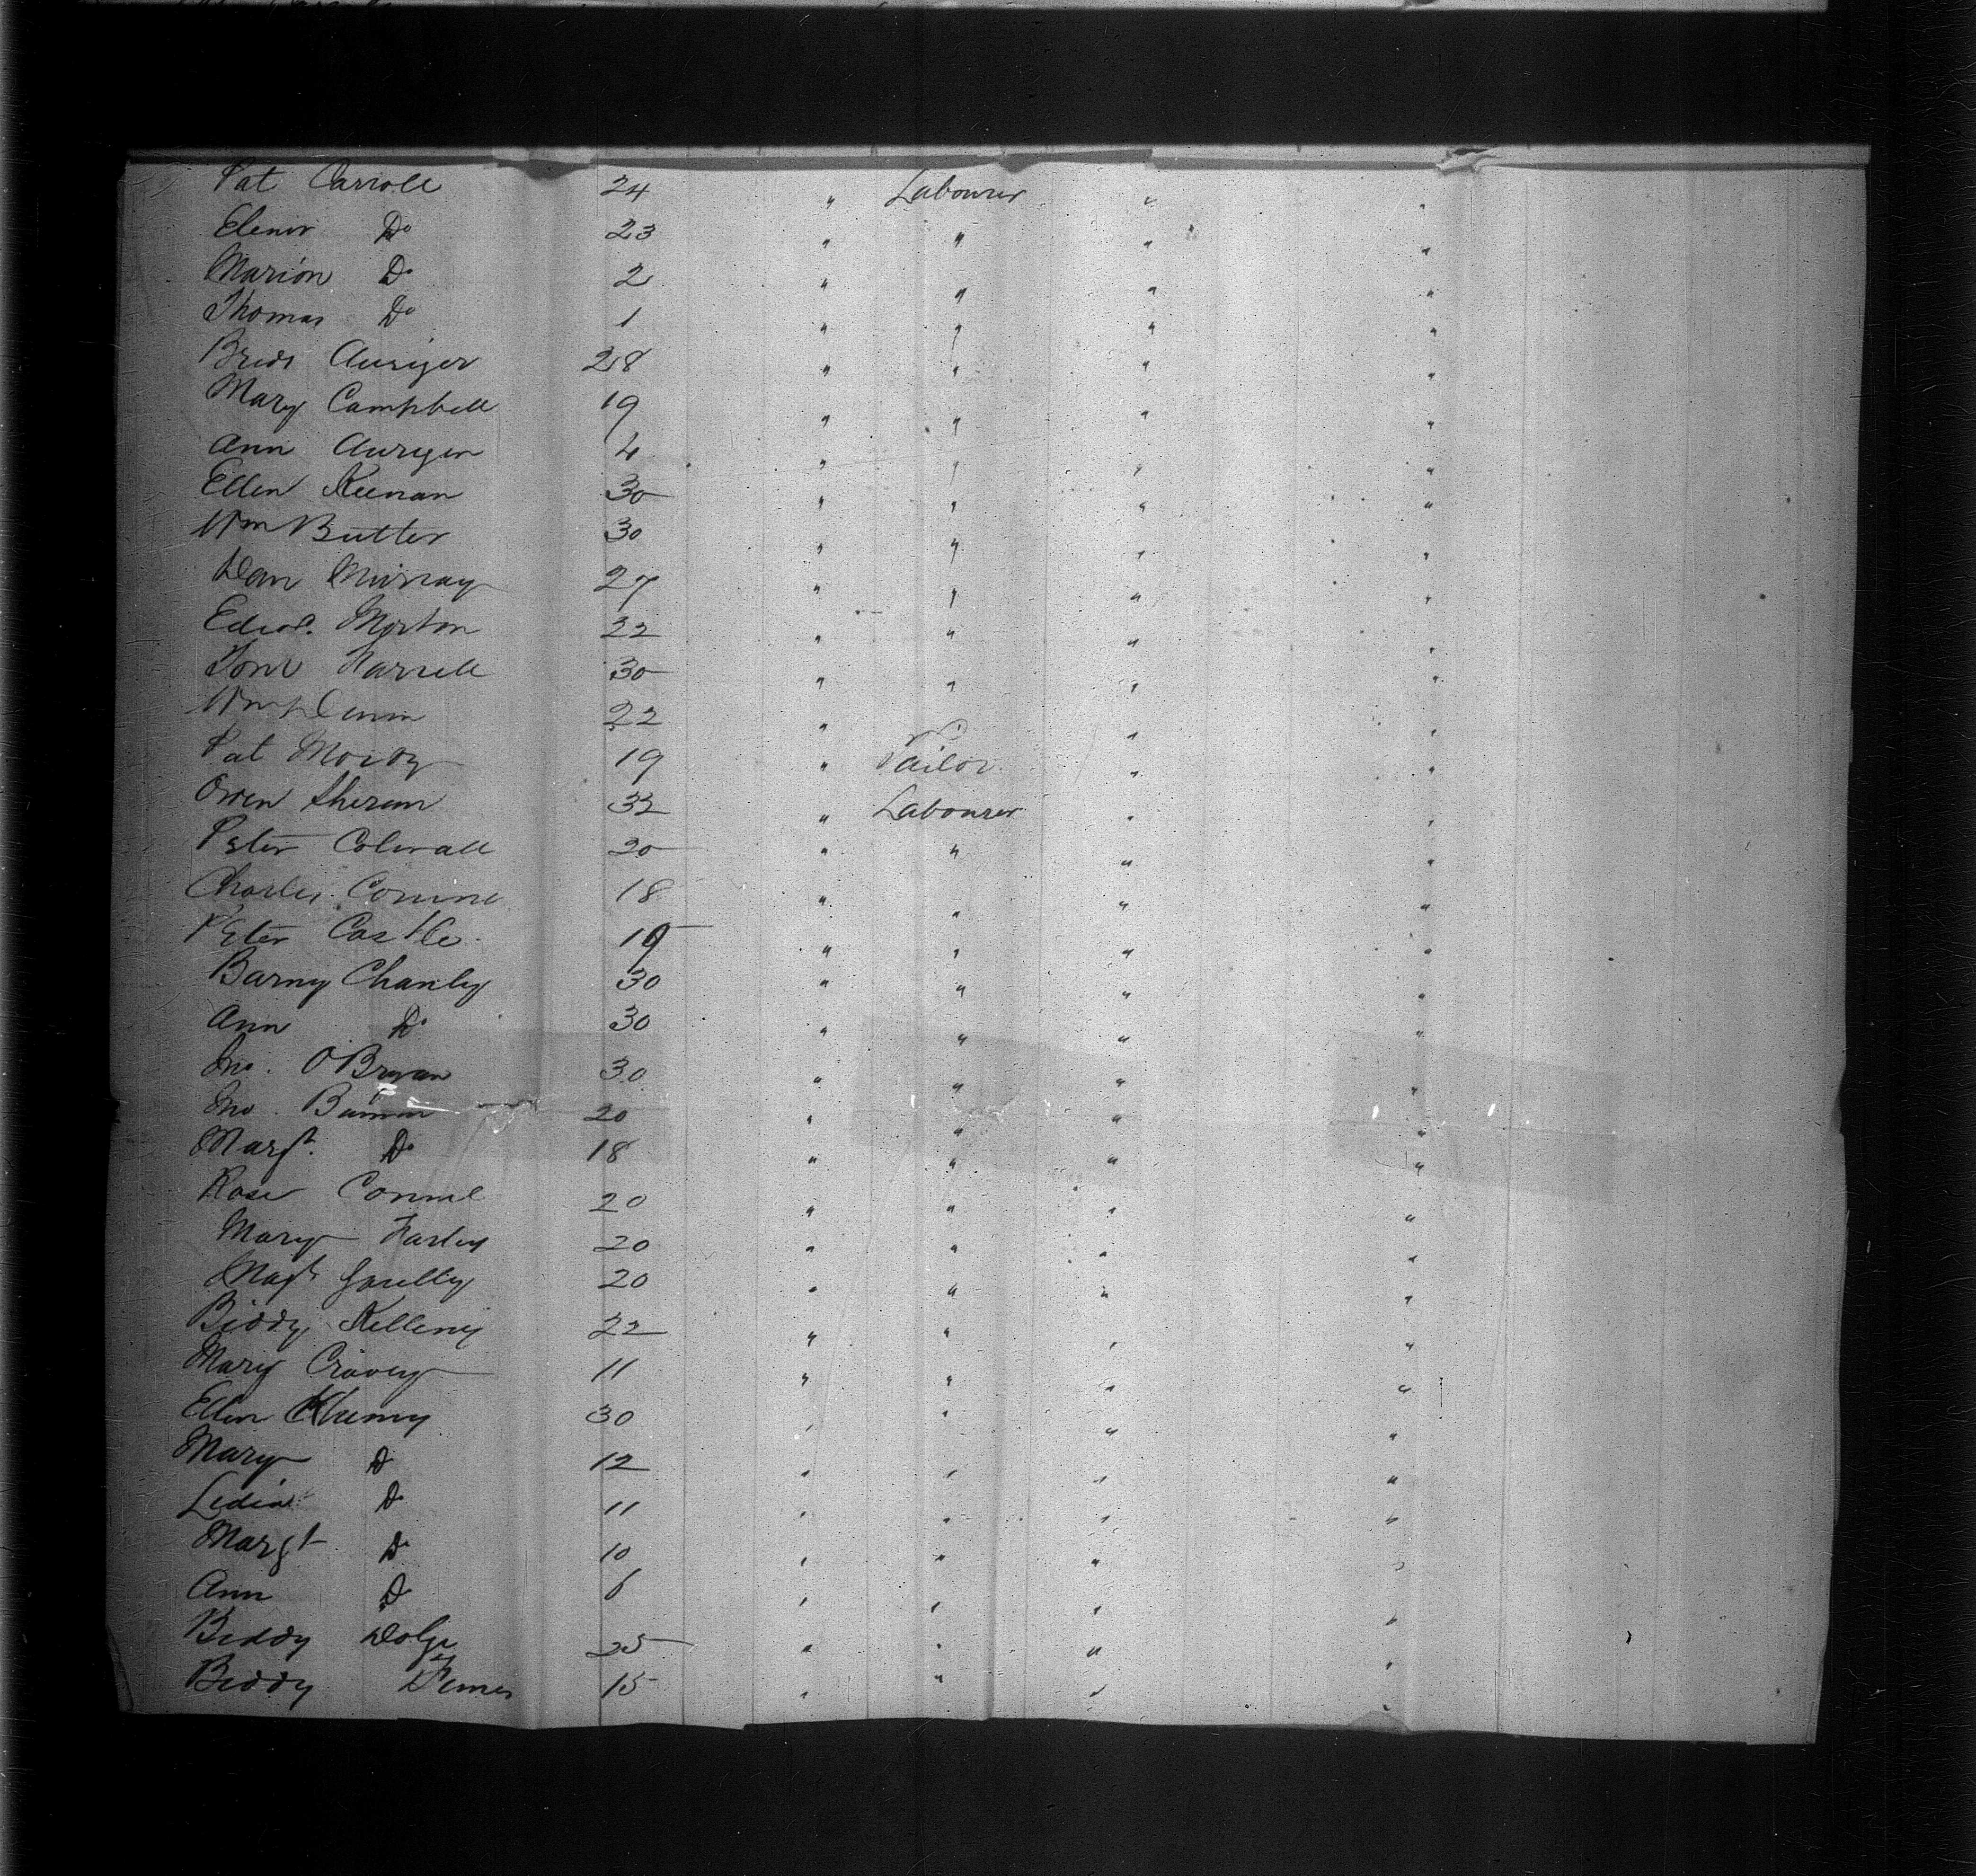 Pat Carroll 24 " Labourer " "
Elenor Do 23 " " " "
Marion Do 2 " " " "
Thomas Do 1 " " " "
Brid 28 " " " "
Mary Campbell 19 " " " "
Ann 4 " " " "
Ellen Keenan 30 " " " "
Wm Butter 30 " " " "
Dan Murray 27 " " " "
Edwd. Morton 22 " " " "
Tom Farrell 30 " " " "
Wm Dunn 22 " " "
Pat 19 " Tailor " "
Owen Sheran 32 " Labourer " "
Peter 20 " " " "
Charles 18 " " " "
Peter Castle 19 " " " "
Barny Chanly 30 " " " "
Ann Do 30 " " " "
Jno. O'Bryan 30 " " " "
Jno. 20 " " " "
Margt. Do 18 " " " "
Rose 20 " " " "
Mary Farley 20 " " " "
Magt 20 " " " "
Biddy 22 " " " "
Mary 11 " " " "
Ellen 30 " " " "
Mary Do 12 " " " "
Do 11 " " " "
Margt Do 10 " " " "
Ann Do 6 " " " "
Biddy 25 " " " "
Biddy 15 " " " "